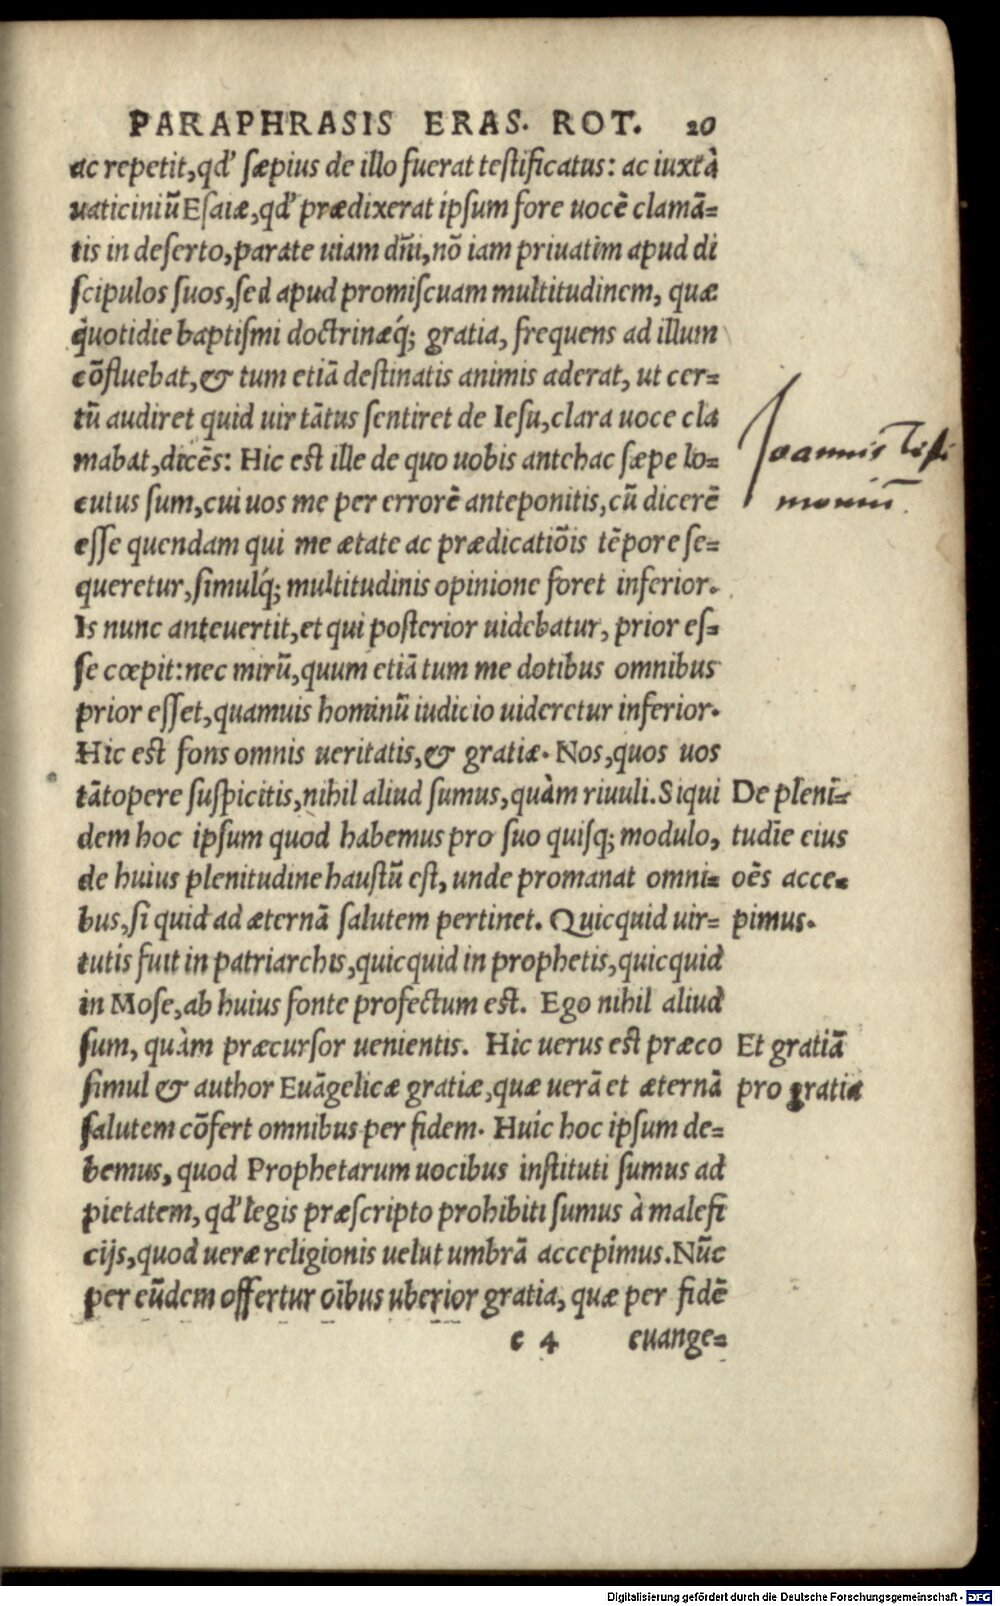 PARAPHRASIS ERAS. ROT. 20
ac repetit, qđ sæpius de illo fuerat testificatus: ac iuxtà
uaticiniũ Esaiæ, qđ prædixerat ipsum fore uocẽ clamã=
tis in deserto, parate uiam dñi, nõ iam priuatim apud di
scipulos suos, sed apud promiscuam multitudinem, quæ
quotidie baptismi doctrinæq́; gratia, frequens ad illum
cõfluebat, & tum etiã destinatis animis aderat, ut cer=
tũ audiret quid uir tãtus sentiret de Iesu, clara uoce cla
mabat, dicẽs: Hic est ille de quo uobis antehac sæpe lo=
cutus sum, cui uos me per errorẽ anteponitis, cũ dicerẽ
esse quendam qui me ætate ac prædicatiõis tẽpore se=
queretur, simulq́; multitudinis opinione foret inferior.
Is nunc anteuertit, et qui posterior uidebatur, prior es=
se cœpit: nec mirũ, quum etiã tum me dotibus omnibus
prior esset, quamuis hominũ iudicio uideretur inferior.
Hic est fons omnis ueritatis, & gratiæ. Nos, quos uos
tãtopere suspicitis, nihil aliud sumus, quàm riuuli. Siqui
dem hoc ipsum quod habemus pro suo quisq; modulo,
de huius plenitudine haustũ est, unde promanat omni=
bus, si quid ad æternã salutem pertinet. Quicquid uir=
tutis fuit in patriarchis, quicquid in prophetis, quicquid
in Mose, ab huius fonte profectum est. Ego nihil aliud
sum, quàm præcursor uenientis. Hic uerus est præco
simul & author Euãgelicæ gratiæ, quæ uerã et æternã
salutem cõfert omnibus per fidem. Huic hoc ipsum de=
bemus, quod Prophetarum uocibus instituti sumus ad
pietatem, qđ legis præscripto prohibiti sumus à malefi
cijs, quod ueræ religionis uelut umbrã accepimus. Nũc
per eũdem offertur oĩbus uberior gratia, quæ per fidẽ
c 4 euange=
Ioannis Testi
moniũ.
De pleni=
tudĩe eius
oẽs acce=
pimus.
Et gratiã
pro gratia
Digitalisierung gefördert durch die Deutsche Forschungsgemeinschaft - DFG